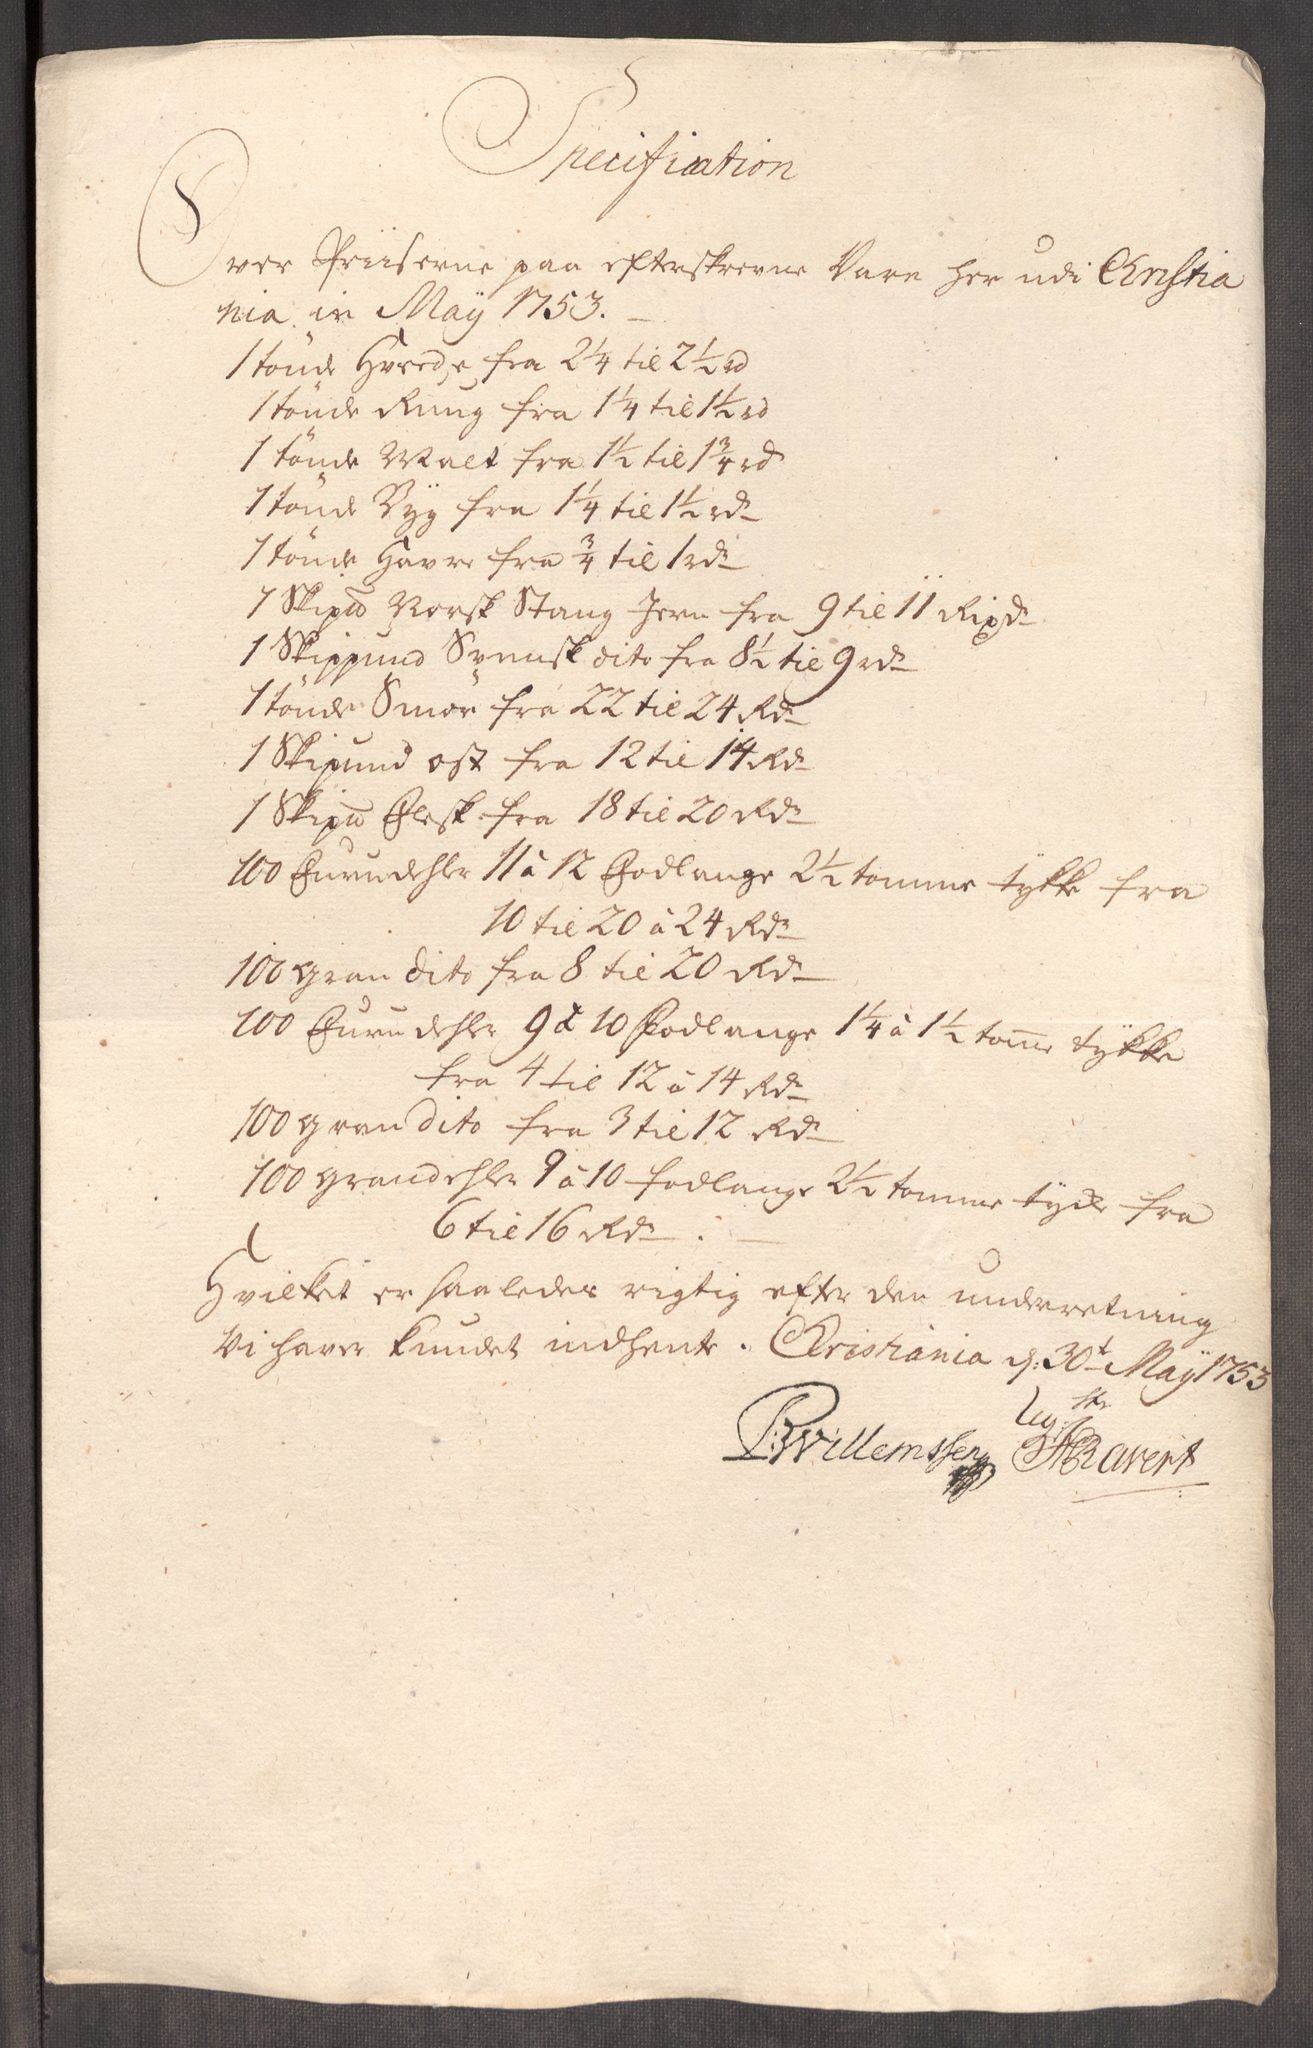 Specification
Over Priiserne paa efterskrevne Vare her udi Christia
nia in Maÿ 1753.
1 tönde Hvede fra 2¼ til 2½ rd
1 tönde Rug fra 1¼ til 1½ rd
1 tönde Malt fra 1½ til 1¾ rd
1 tönde Byg fra 1¼ til 1½ rdr
1 tönde Havre fra ¾ til 1 rdr
1 Skipd Norsk Stang Jern fra 9 til 11 Rixdr
1 Skippund Svensk dito fra 8½ til 9 rdr
1 tönde Smör fra 22 til 24 Rdr
1 Skipund ost fra 12 til 14 Rdr
1 Skipd Flesk fra 18 til 20 Rdr
100 Furudehler 11 à 12 Fodlange 2½ tomme tykke fra
10 til 20 à 24 Rdr
100 gran dito fra 8 til 20 Rdr
100 Furu dehler 9 à 10 Fodlange 1¼ à 1½ tome tÿkke
fra 4 til 12 à 14 Rdr
100 gran dito fra 3 til 12 Rdr
100 grandehler 9 à 10 fodlange 2½ tomme tycke fra
6 til 16 Rdr.
Hvilket er saaledes rigtig efter den underretning
Vi haver kundet indhente. Christiania d: 30t Maÿ 1753
PWillemssen Ravert